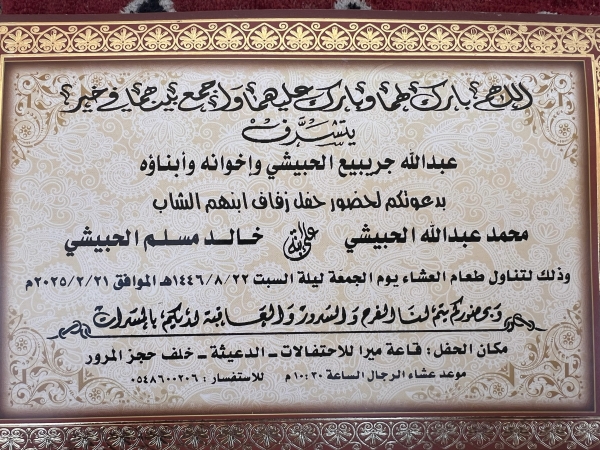 اللهم بارك لهما وبارك عليهما واجمع بينهما في خير
يتشرف
عبدالله جريبيع الحبيشي وإخوانه وأبناؤه
بدعوتكم لحضور حفل زفاف ابنهم الشاب
محمد عبدالله الحبيشي على ابنة خالد مسلم الحبيشي
وذلك لتناول طعام العشاء يوم الجمعة ليلة السبت ١٤٤٦/٨/٢٢هـ الموافق ٢٠٢٥/٢/٢١م
وبحضوركم يتم لنا الفرح والسرور والعاقبة لديكم بالمسرات
مكان الحفل : قاعة ميرا للاحتفالات - الدعيثة - خلف حجز المرور
موعد عشاء الرجال الساعة ١٠:٣٠م للاستفسار : ٠٥٤٨٦٠٠٢٠٦